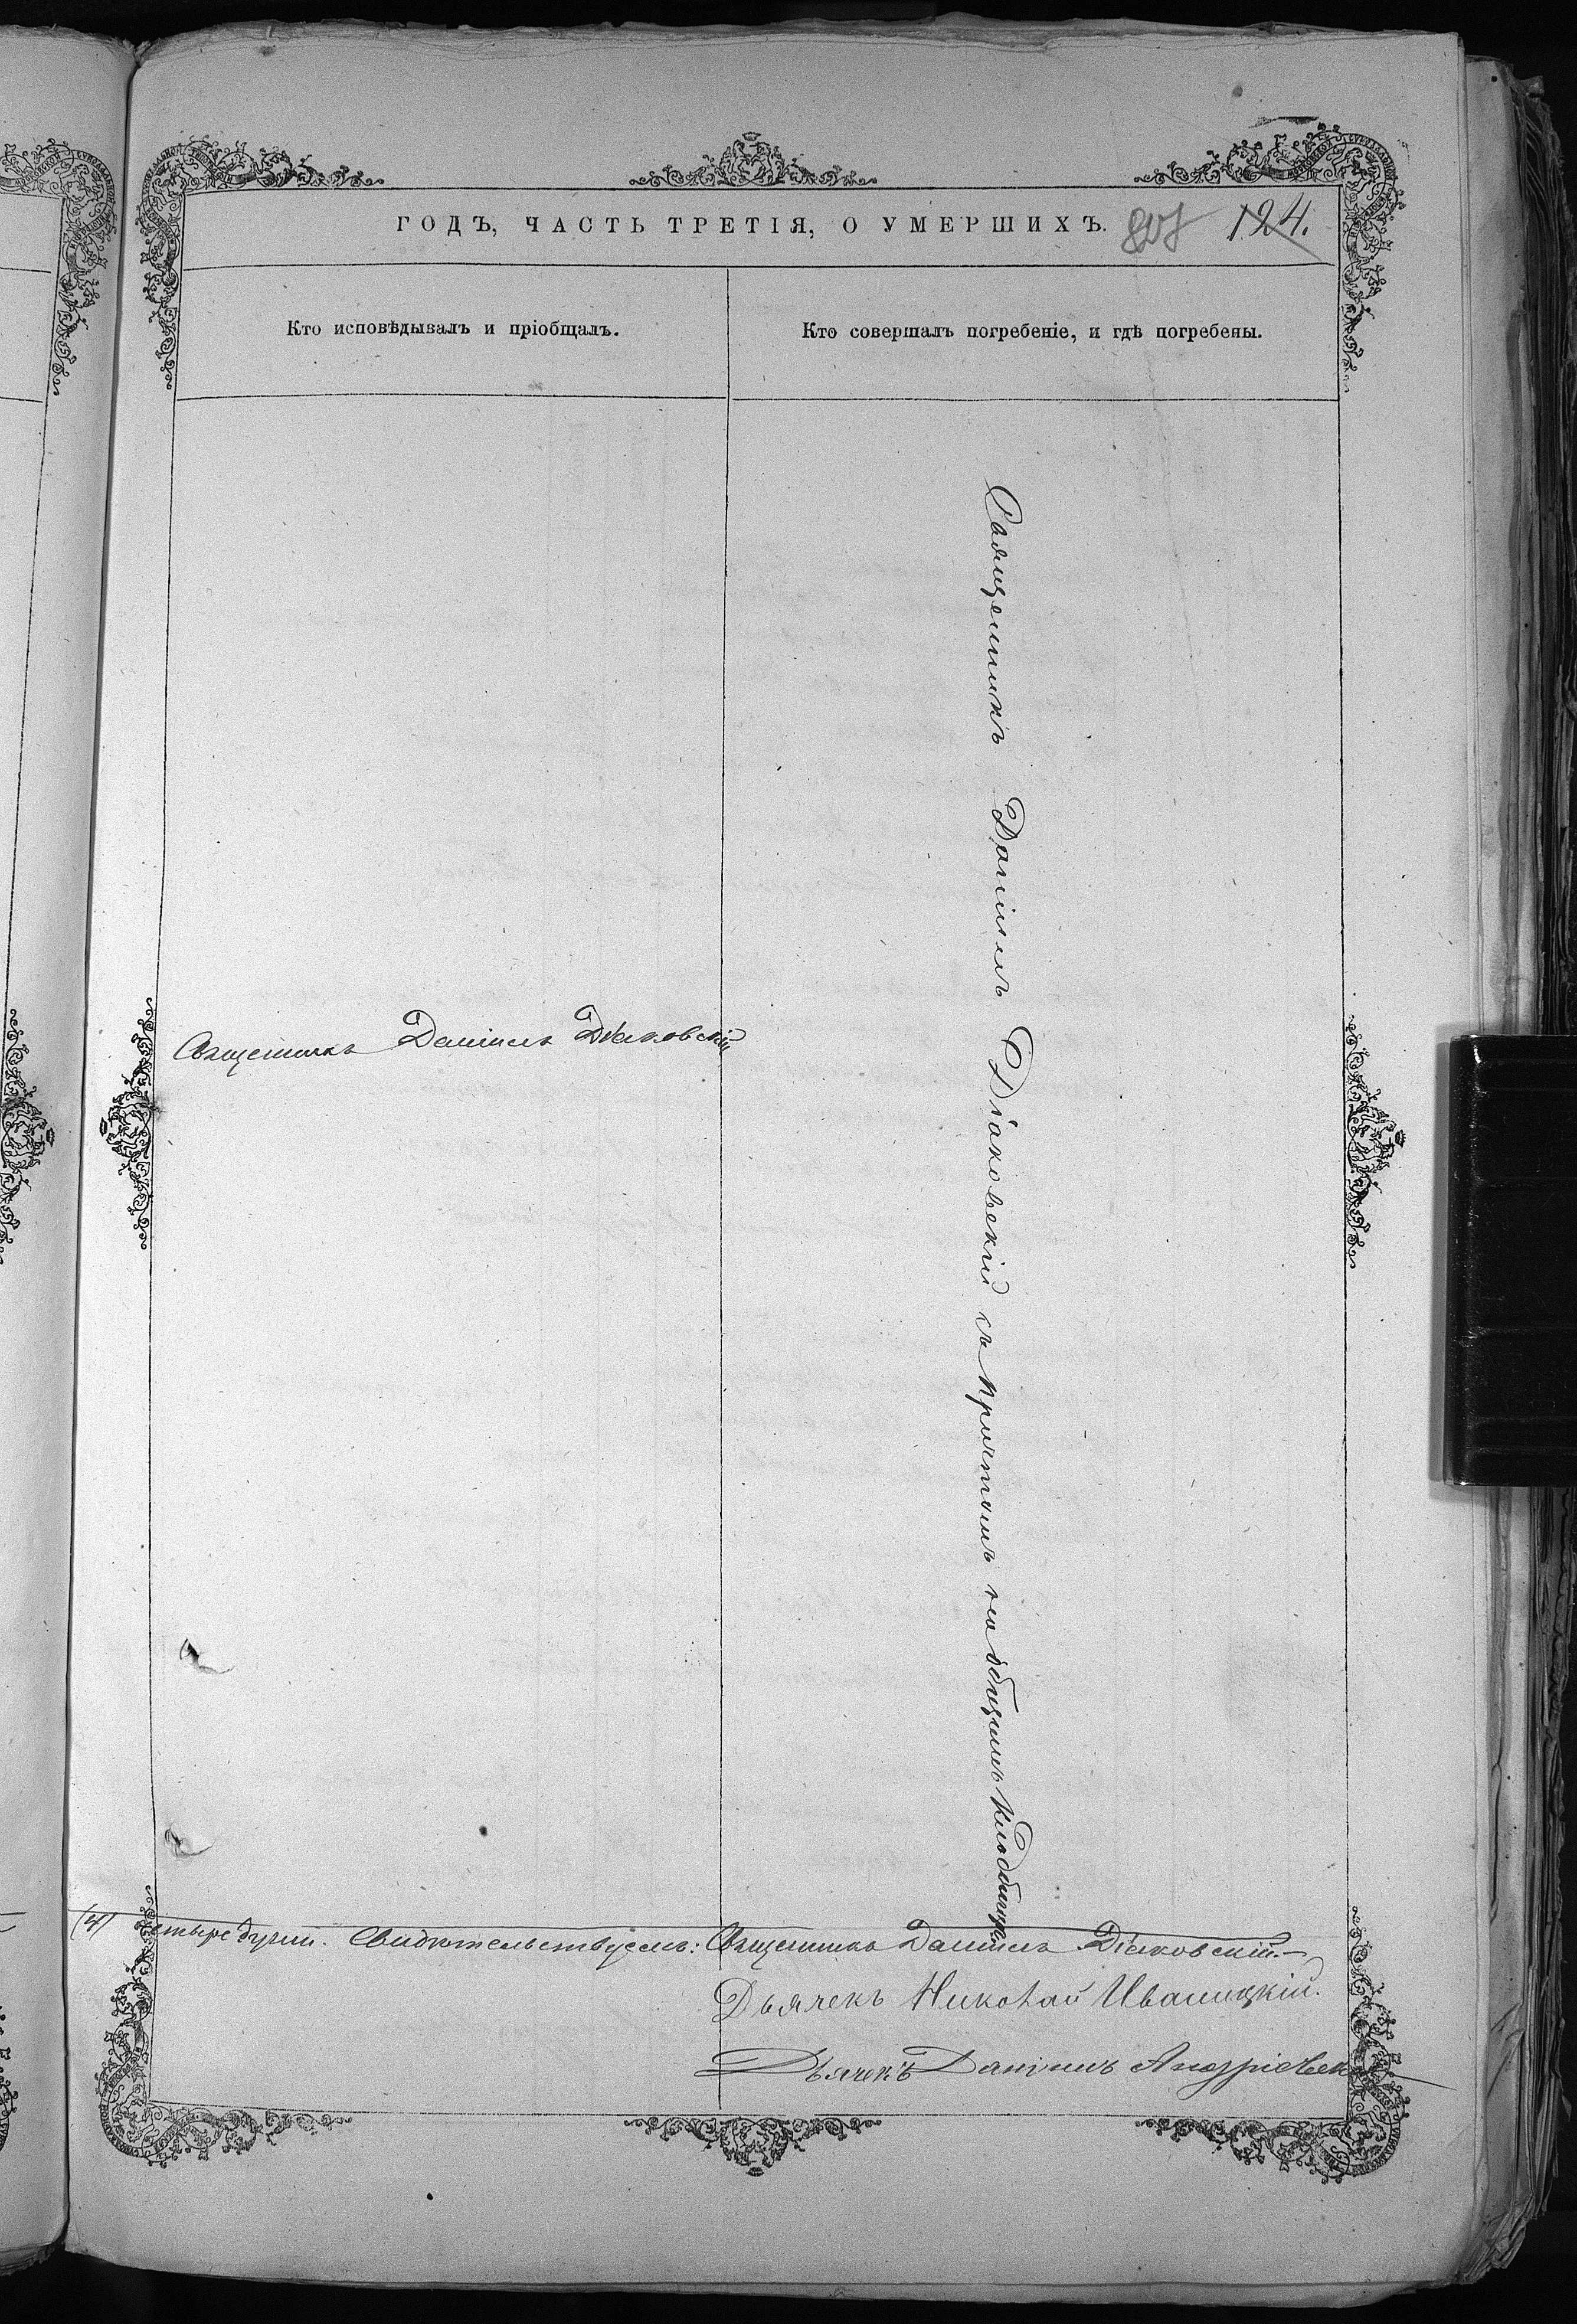 ГОДЪ, ЧАСТЬ ТРЕТІЯ, О УМЕРШИХЪ. 124.
Кто исповѣдывалъ и пріобщалъ.
Кто совершалъ погребеніе, и гдѣ погребены.
Священникъ Даніилъ Діаковскій
Священникъ Даніилъ Діаковскій съ причтомъ на общемъ кладбищѣ
(4) четыре души. Свидѣтельствуемъ: Священникъ Даніилъ Діаковскій.
Дьячекъ Николай Иваницкій.
Дьячекъ Даніилъ